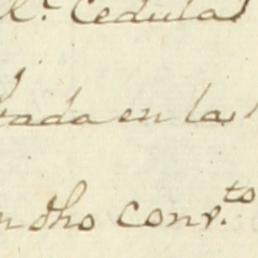 Rl. Cedula
rada en las
en dho conv.to